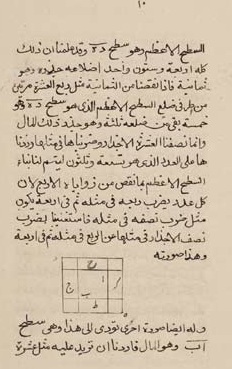 ١٠
السطح الاعظم وهو سطح د ه وقد علمنا ان ذلك
كله اربعة وستون واحد اضلاعه جذره وهو
ثمانية فاذا نقصنا من الثمانية مثل ربع العشرة مرتين
من طرفى ضلع السطح الاعظم الذى هو سطح د ه وهو
خمسة بقى من ضلعه ثلثة وهو جذر ذلك المال
وانما نصفنا العشرة الاجذار وضربناها فى مثلها وزدناها
على العدد الذى هو تسعة وثلثون ليتم لنا بناء
السطح الاعظم بما نقص من زواياه الاربع لان
كل عدد يضرب ربعه فى مثله ثم فى اربعة يكون
مثل ضرب نصفه فى مثله فاستغنينا بضرب
نصف الاجذار فى مثلها عن الربع فى مثله ثم فى اربعة
وهذا صورته
ح
ا
ج
ط
ب
ه
وله ايضا صورة اخرى تؤدى الى هذا وهى سطح
ا ب وهو المال فاردنا ان نزيد عليه مثل عشرة